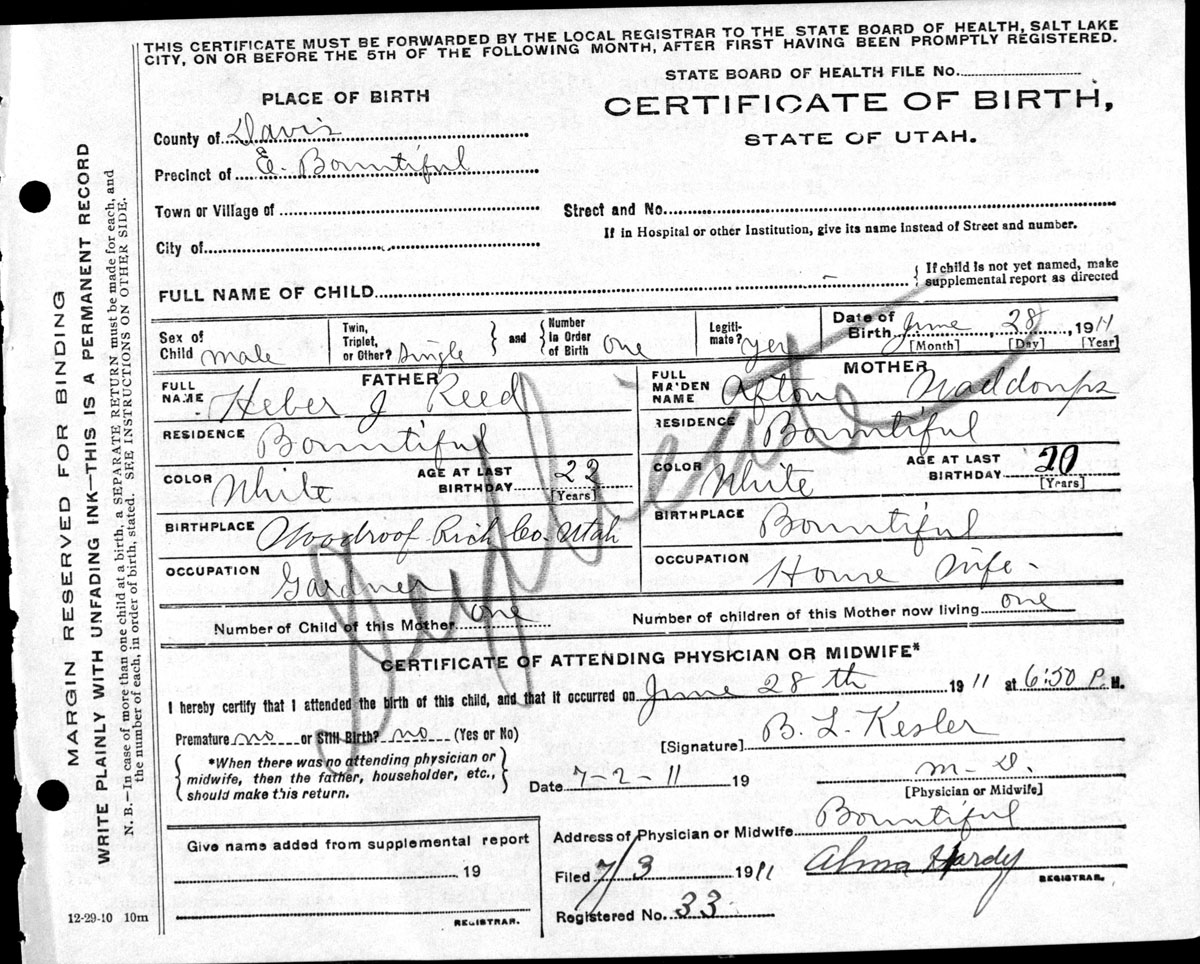 THIS CERTIFICATE MUST BE FORWARDED BY THE LOCAL REGISTRAR TO THE STATE BOARD OF HEALTH, SALT LAKE
CITY, ON OR BEFORE THE 5TH OF THE FOLLOWING MONTH, AFTER FIRST HAVING BEEN PROMPTLY REGISTERED.
STATE BOARD OF HEALTH FILE No.
PLACE OF BIRTH
CERTIFICATE OF BIRTH,
STATE OF UTAH.
County of Davis
Precinct of E. Bountiful
Town or Village of
Street and No.
If in Hospital or other Institution, give its name Instead of Street and number.
City of
FULL NAME OF CHILD
If child is not yet named, make
supplemental report as directed
Sex of Child male
Twin, Triplet, or Other? Single
and
Number in Order of Birth one
Legitimate? yes
Date of Birth June 28, 1911
[Month] [Day] [Year]
FATHER
FULL NAME Heber J Reed
RESIDENCE Bountiful
COLOR White AGE AT LAST BIRTHDAY 22 [Years]
BIRTHPLACE Woodroof Rich Co. Utah
OCCUPATION Gardner
MOTHER
FULL MAIDEN NAME Afton Waddoups
RESIDENCE Bountiful
COLOR White AGE AT LAST BIRTHDAY 20 [Years]
BIRTHPLACE Bountiful
OCCUPATION House Wife
Duplicate
Number of Child of this Mother one
Number of children of this Mother now living one
CERTIFICATE OF ATTENDING PHYSICIAN OR MIDWIFE*
I hereby certify that I attended the birth of this child, and that it occurred on June 28 th 1911 at 6:50 P.M.
Premature no or Still Birth? no (Yes or No)
[Signature] B. L. Kesler
*When there was no attending physician or
midwife, then the father, householder, etc.,
should make this return.
Date 7-2-11 19
M.D.
[Physician or Midwife]
Address of Physician or Midwife Bountiful
Give name added from supplemental report
19
REGISTRAR.
Filed 7/3 1911 Alma Hardy
REGISTRAR.
Registered No. 33
12-29-10 10m
MARGIN RESERVED FOR BINDING
WRITE PLAINLY WITH UNFADING INK—THIS IS A PERMANENT RECORD
N. B.—In case of more than one child at a birth, a SEPARATE RETURN must be made for each, and
the number of each, in order of birth, stated. SEE INSTRUCTIONS ON OTHER SIDE.